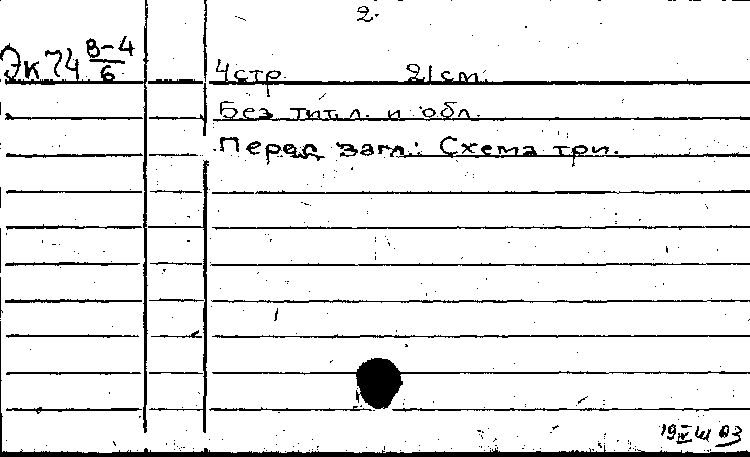 2.
Эк 74 В-4/6
4 стр. 21 см.
Без тит. л. и обл.
Перед загл.: Схема три.